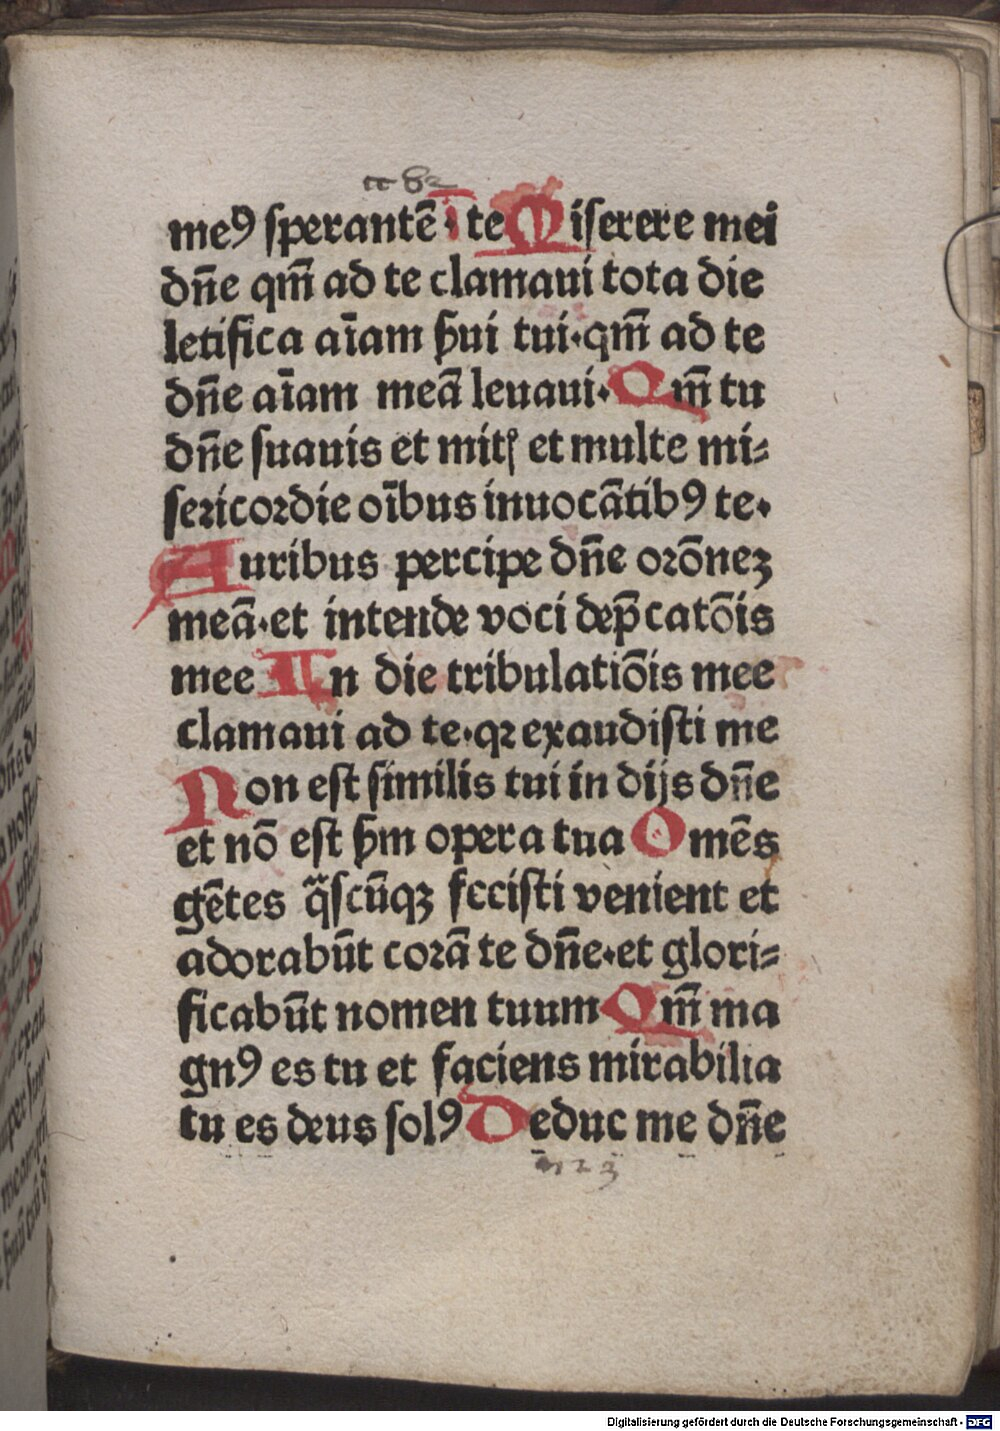 meꝰ sperantē · ī te Miserere mei
dn̄e qm̄ ad te clamaui tota die
letifica aīam ẜui tui · qm̄ ad te
dn̄e aīam meā leuaui · Qm̄ tu
dn̄e suauis et mitꝭ et multe mi⸗
sericordie oībus inuocātibꝰ te ·
Auribus percipe dn̄e orōnez
meā · et intende voci dep̄catōis
mee In die tribulatiōis mee
clamaui ad te · qꝛ exaudisti me
Non est similis tui in dijs dn̄e
et nō est ẜm opera tua Omēs
gētes q̈scūqꝫ fccisti venient et
adorabūt corā te dn̄e · et glori⸗
ficabūt nomen tuum Qm̄ ma
gnꝰ es tu et faciens mirabilia
tu es deus solꝰ Deduc me dn̄e
Digitalisierung gefördert durch die Deutsche Forschungsgemeinschaft - DFG